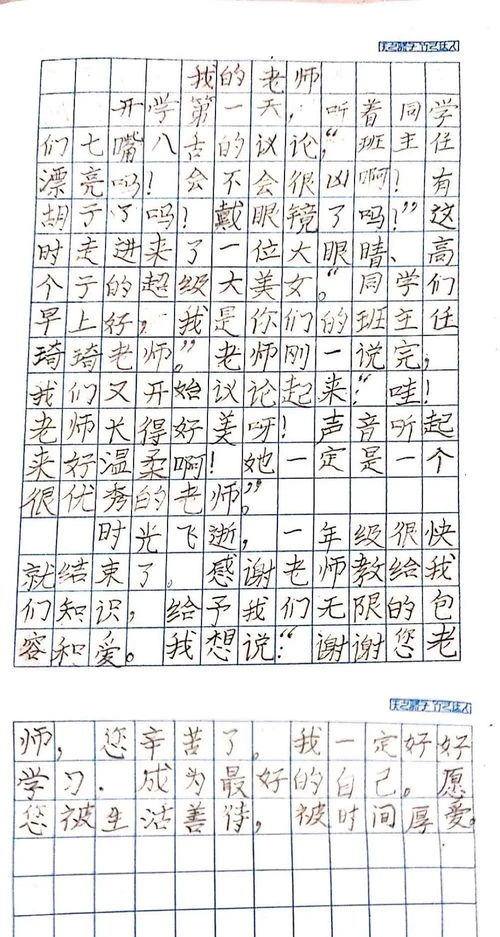 我的老师
开学第一天，听着同学
们七嘴八舌的议论，“班主任
漂亮吗！会不会很凶啊！有
胡子了吗！戴眼镜了吗！”这
时走进来了一位大眼睛、高
个子的超级大美女。“同学们
早上好，我是你们的班主任
琦琦老师。”老师刚一说完，
我们又开始议论起来：“哇！
老师长得好美呀！声音听起
来好温柔啊！她一定是一个
很优秀的老师”。
时光飞逝，一年级很快
就结束了。感谢老师教给我
们知识，给予我们无限的包
容和爱。我想说：“谢谢您老
师，您辛苦了。我一定好好
学习．成为最好的自己。愿
您被生活善待，被时间厚爱。